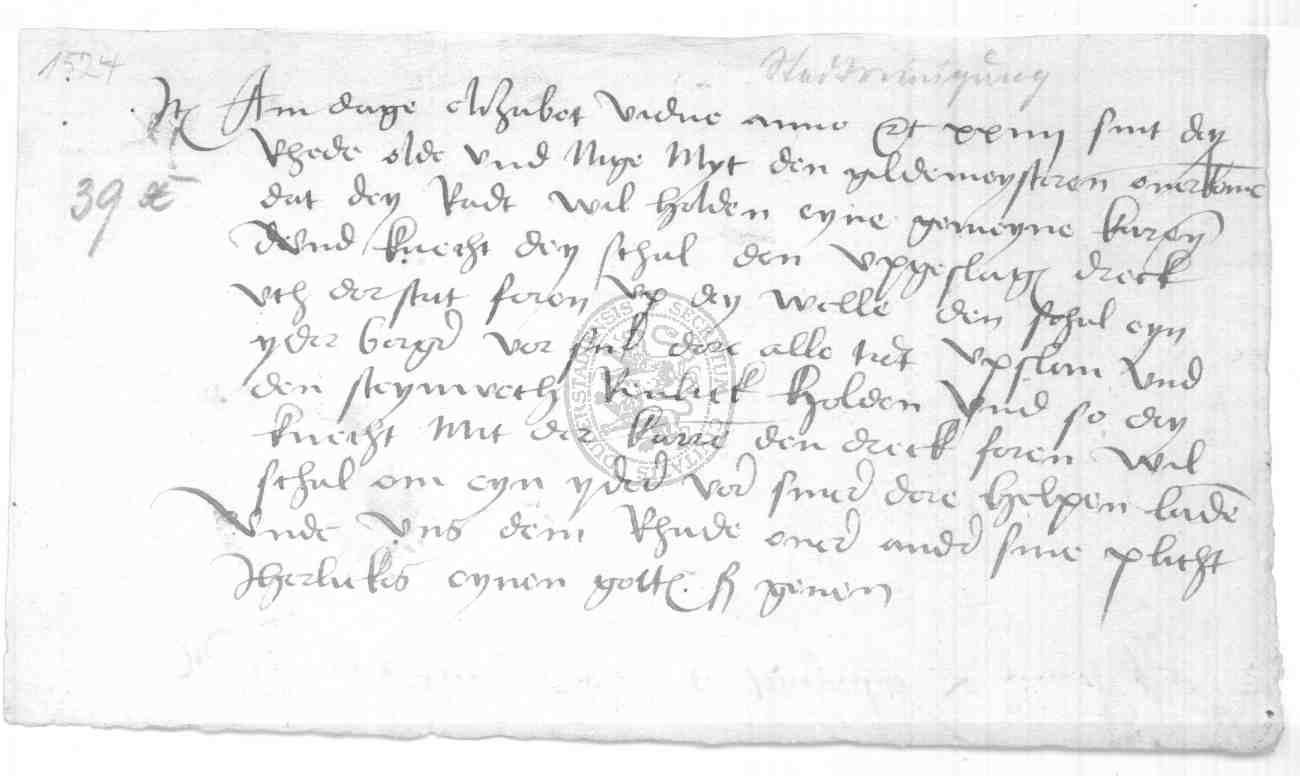 1524
Stadtreinigung
It Am dage elizabet vidue anno etc xxiiij sint dey
39 a
Rhede olde vnd Nige Myt den gildemeysteren ouerkome
dat dey Radt wil holden eyne gemeyne karen
vnd knecht dey schal den vpgeslagen dreck
vth der stat foren vp dey welle den schal eyn
yder borger vor syner dore alle tidt vpslan vnd
den steynwech Renlick Holden vnd so dey
knecht Mit der karre den dreck foren wil
schal om eyn yder vor siner dore helpen laden
Vnde Vns dem Rhade ouer ander sine plicht
Jherlickes eynen gott ß geuen